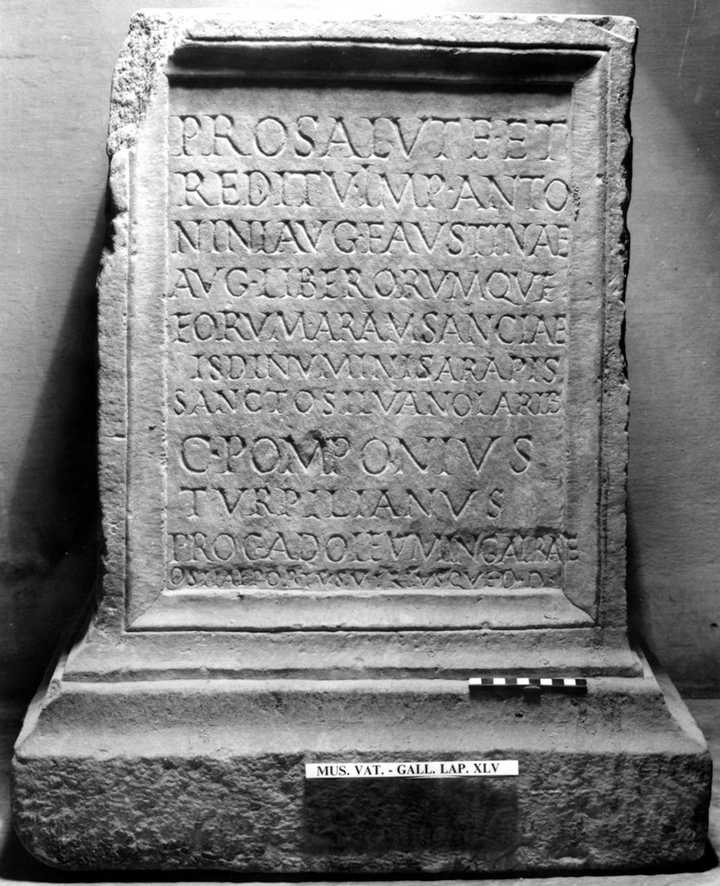 PRO SALVTE · ET
REDITV · IMP · ANTO
NINI AVG · FAVSTINAE
AVG · LIBERORVMQVE
EORVM ARAM SANCTAE
ISDI NVMINI SARAPIS
SANCTO SILVANO LARIB
C · POMPONIVS
TVRPILIANVS
PROC · AD OLEVM IN GALBAE
OSTIAE PORTVS VTRIVSQVE D · D ·
MUS. VAT. - GALL. LAP. XLV